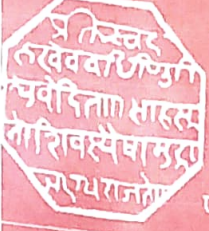 प्रतिपच्चंद्र
लेखेव वर्धिष्णुर्वि
श्ववंदिता ॥ शाहसू
नोः शिवस्यैषा मुद्रा
भद्राय राजते